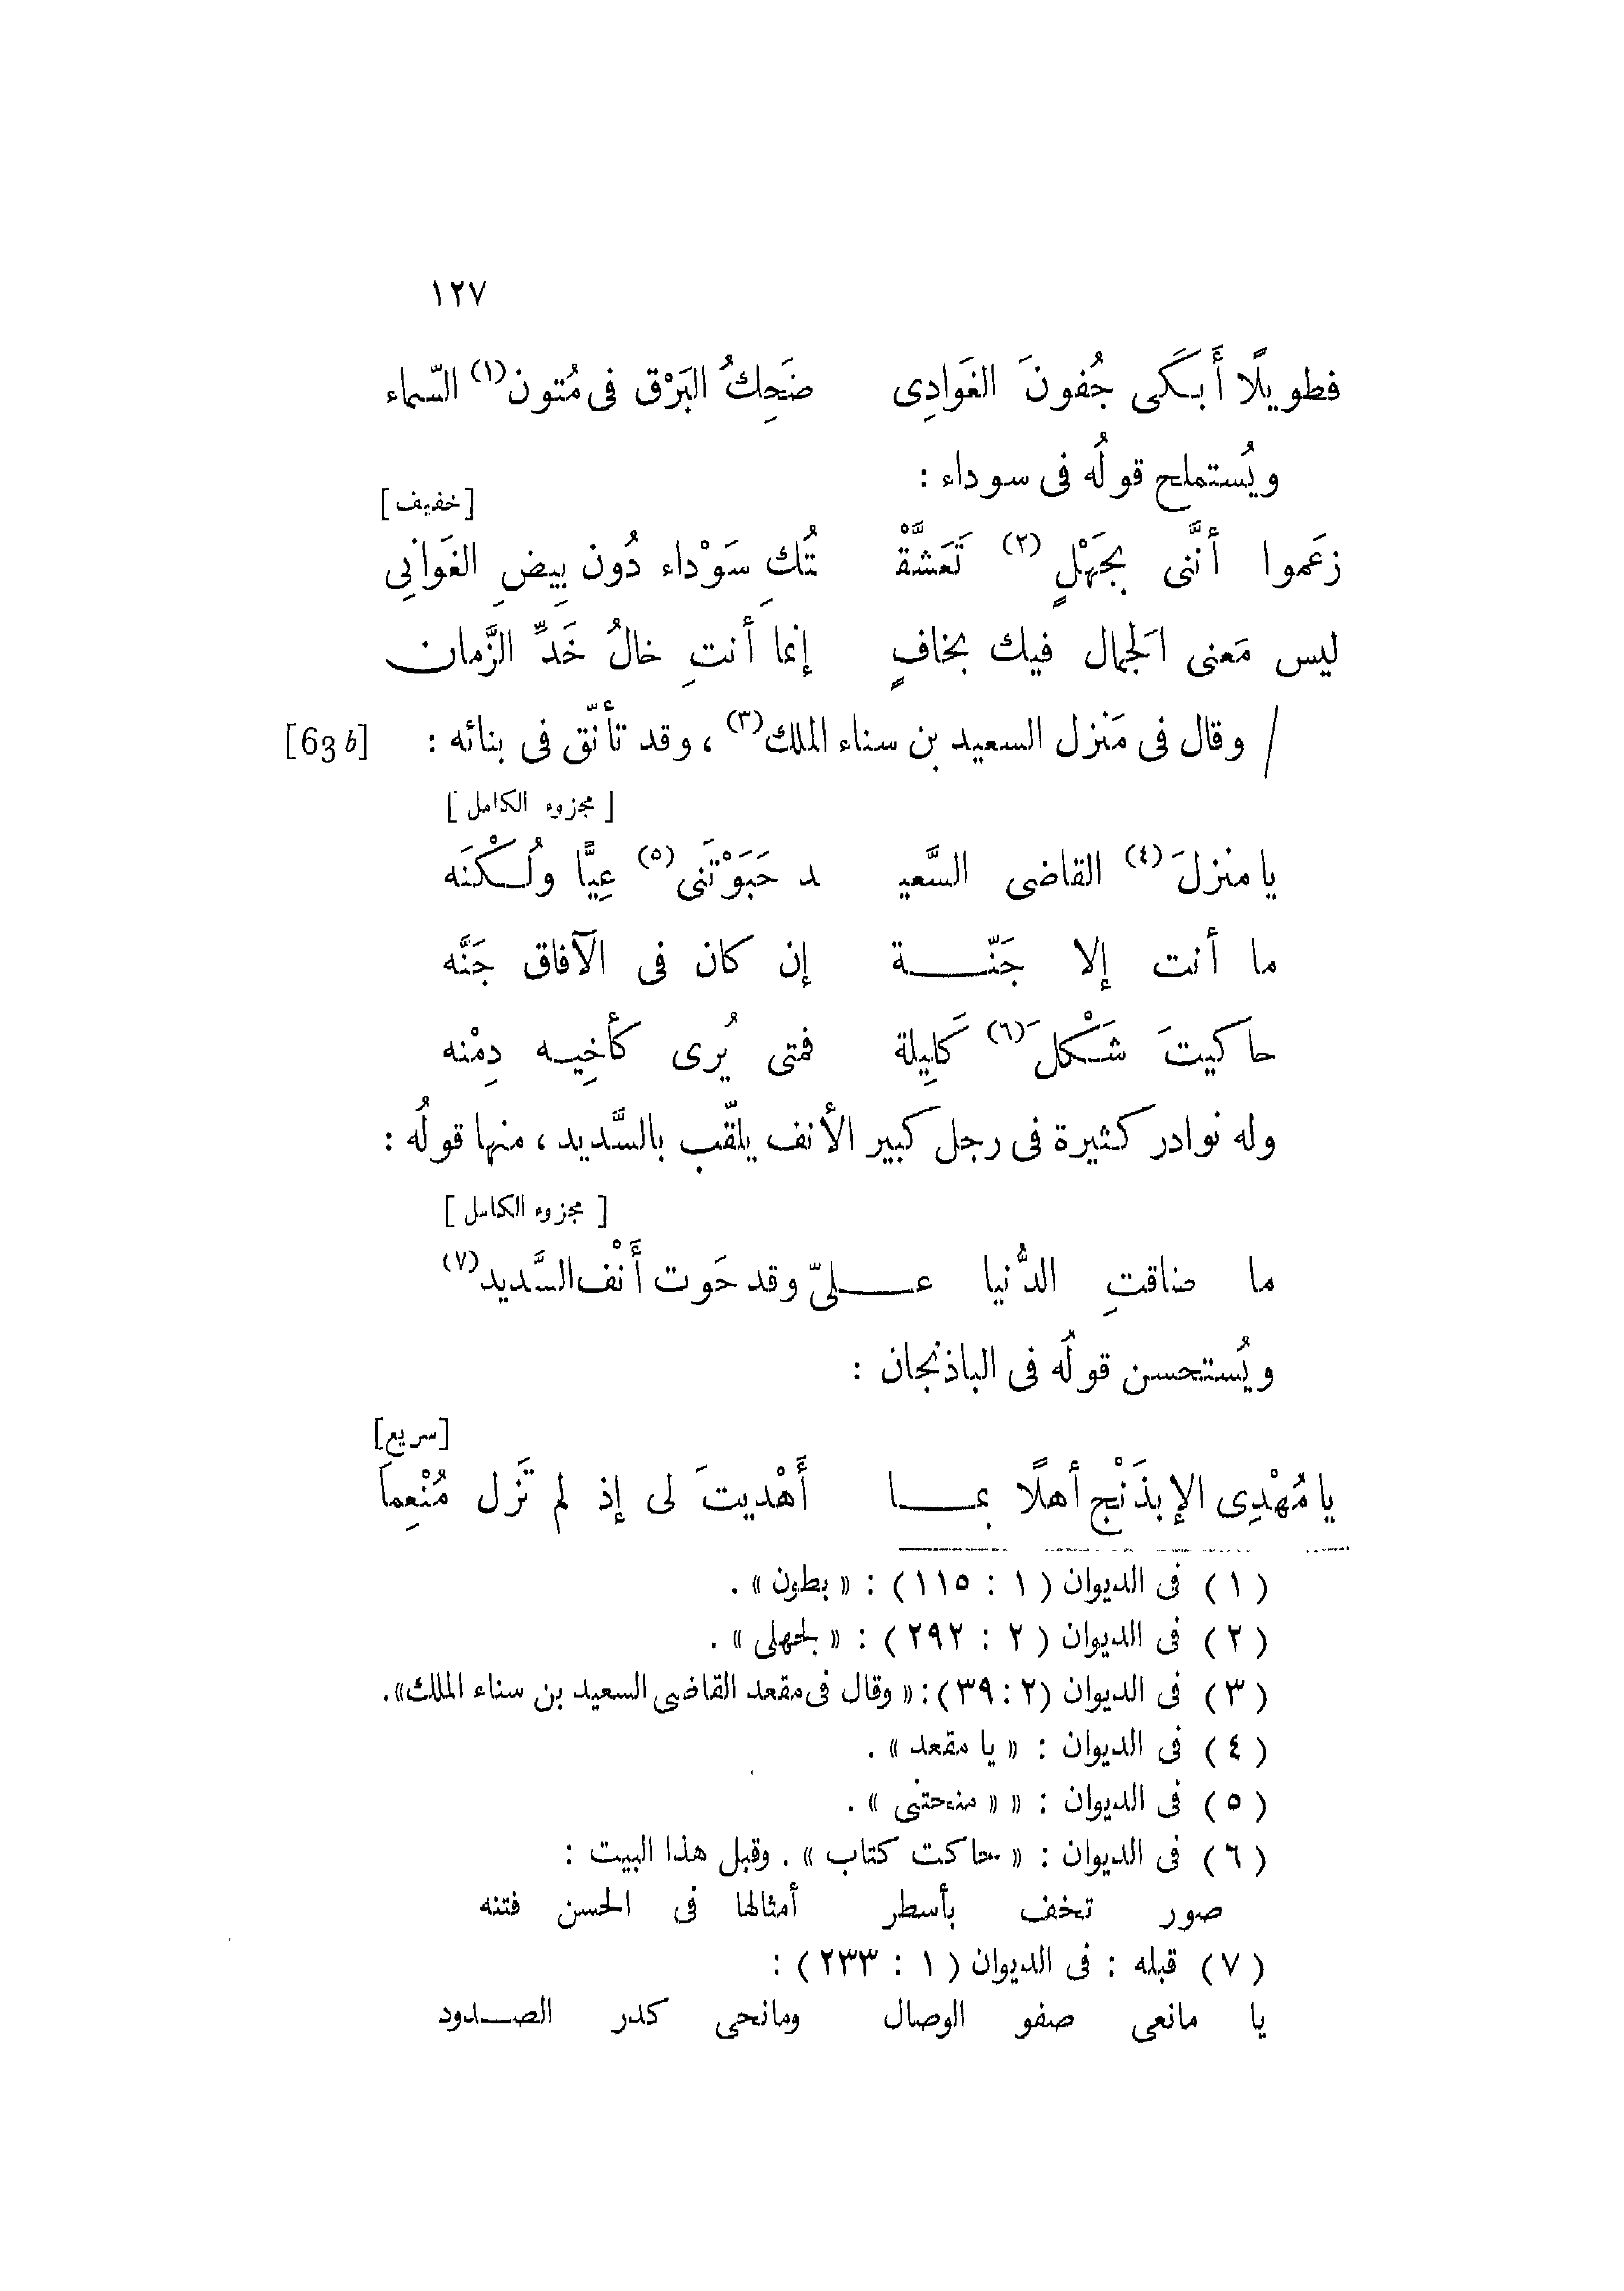 ١٢٧
فطويلًا أَبكَى جُفونَ الغَوادِى ضَحِكُ البَرْق فى مُتون(١) السّماء
ويُستملح قولُه فى سوداء :
[خفيف]
زعَموا أنَّنى بجَهْلٍ(٢) تَعَشَّقْ تُكِ سَوْداء دُون بِيضِ الغَوانِى
ليس مَعنى الجَمال فيك بخافٍ إنما أنتِ خالُ خَدِّ الزَّمان
/ وقال فى مَنزل السعيد بن سناء الملك(٣) ، وقد تأنّق فى بنائه : [63 b]
[ مجزوء الكامل ]
يا منزلَ(٤) القاضى السَّعيد حَبَوْتَنى(٥) عِيًّا ولُكْنَه
ما أنت إلا جَنّة إن كان فى الآفاق جَنَّه
حاكيتَ شَكْلَ(٦) كَلِيلة فمتى يُرى كأخِيه دِمْنه
وله نوادر كثيرة فى رجل كبير الأنف يلقّب بالسَّديد ، منها قولُه :
[ مجزوء الكامل ]
ما ضاقتِ الدُّنيا علىّ وقد حَوت أَنْف السَّديد(٧)
ويُستحسن قولُه فى الباذنجان :
[سريع]
يا مُهْدِى الإبذَنْج أهلًا بما أَهْديتَ لى إذ لم تَزل مُنْعِما
(١) فى الديوان (١ : ١١٥) : « بطون » .
(٢) فى الديوان (٢ : ٢٩٢) : « لجهلى » .
(٣) فى الديوان (٢ : ٣٩) : « وقال فى مقعد القاضى السعيد بن سناء الملك» .
(٤) فى الديوان : « يا مقعد » .
(٥) فى الديوان : « « منحتنى » .
(٦) فى الديوان : « حاكت كتاب » . وقبل هذا البيت :
صور تخف بأسطر أمثالها فى الحسن فتنه
(٧) قبله : فى الديوان (١ : ٢٣٣) :
يا مانعى صفو الوصال ومانحى كدر الصدود